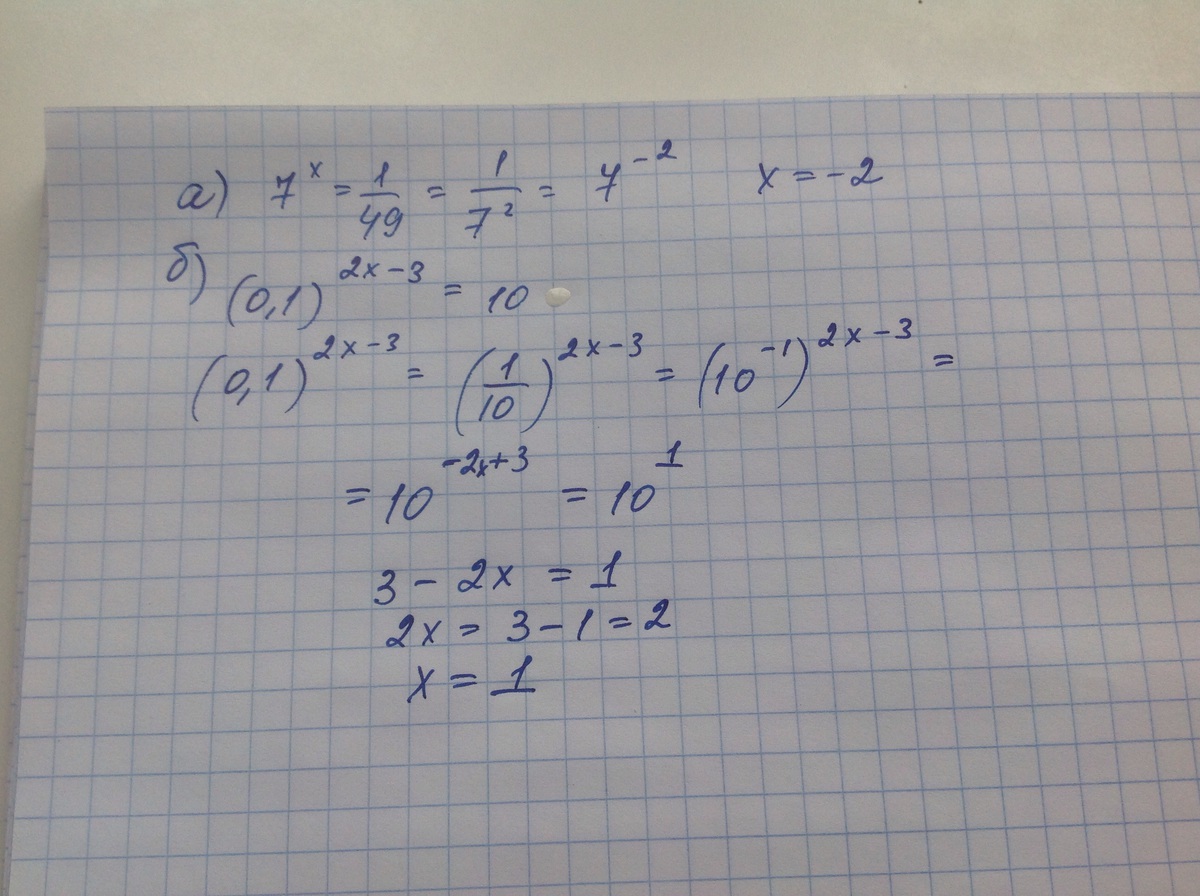 а) 7^x = 1/49 = 1/7^2 = 7^-2 x = -2
б) (0,1)^2x-3 = 10
(0,1)^2x-3 = (1/10)^2x-3 = (10^-1)^2x-3 =
= 10^-2x+3 = 10^1
3 - 2x = 1
2x = 3 - 1 = 2
x = 1